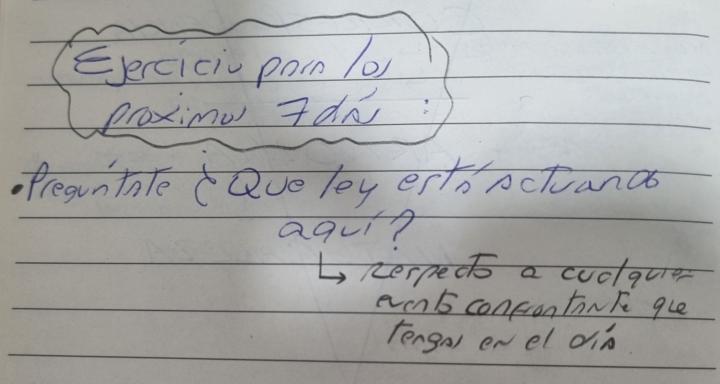 Ejercicio para los
proximos 7 días :
• Pregúntate ¿Que ley está actuando
aquí?
↳ Respecto a cualquier
evento confrontante que
tengas en el día